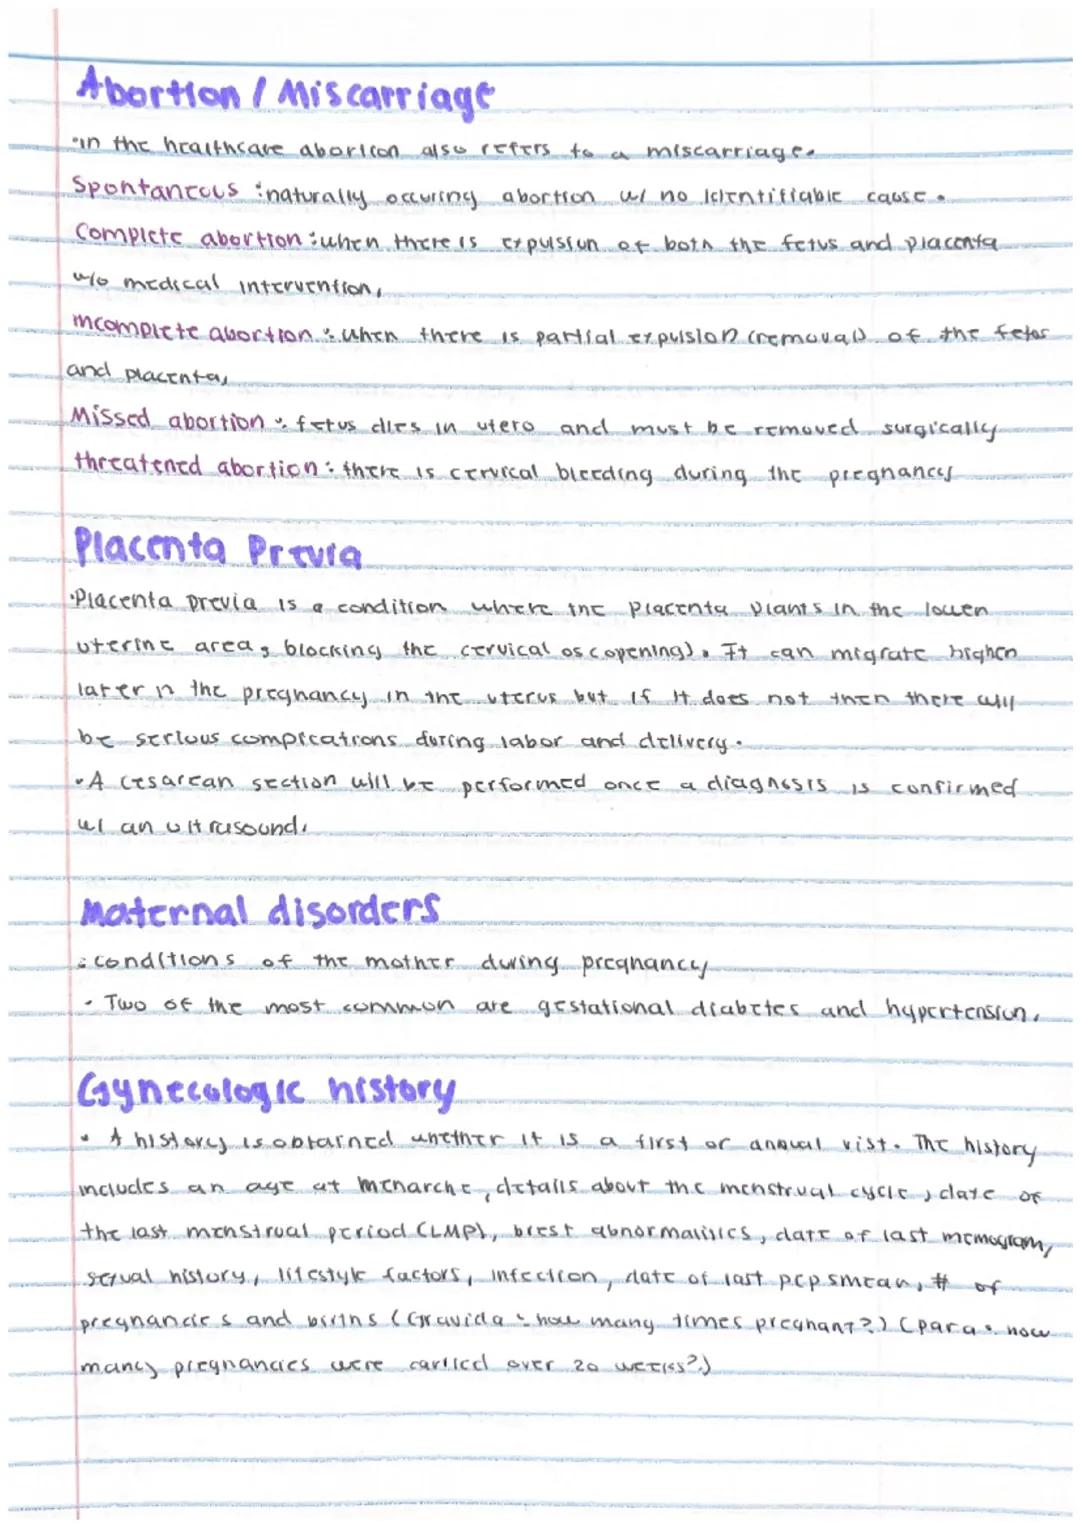 Abortion / Miscarriage
•in the healthcare abortion also refers to a miscarriage.
Spontaneous :naturally occuring abortion w/ no identifiable cause.
Complete abortion :when there is expulsion of both the fetus and placenta
w/o medical intervention,
incomplete abortion : when there is partial expulsion (removal) of the fetus
and placenta,
Missed abortion : fetus dies in utero and must be removed surgically
threatened abortion : there is cervical bleeding during the pregnancy
Placenta Previa
•Placenta previa is a condition where the placenta plants in the lower
uterine area, blocking the cervical os (opening). It can migrate higher
later n the pregnancy in the uterus but if it does not then there will
be serious complications during labor and delivery.
•A cesarean section will be performed once a diagnosis is confirmed
w/ an ultrasound.
Maternal disorders
: conditions of the mother during pregnancy
• Two of the most common are gestational diabetes and hypertension.
Gynecologic history
• A history is obtained whether it is a first or annual vist. The history
includes an age at menarche, details about the menstrual cycle, date of
the last menstrual period (LMP), brest abnormalities, date of last memogram,
sexual history, lifestyle factors, infection, date of last pep smear, # of
pregnancies and births (Gravida : how many times pregnant?) (para : how
many pregnancies were carried over 20 weeks?)